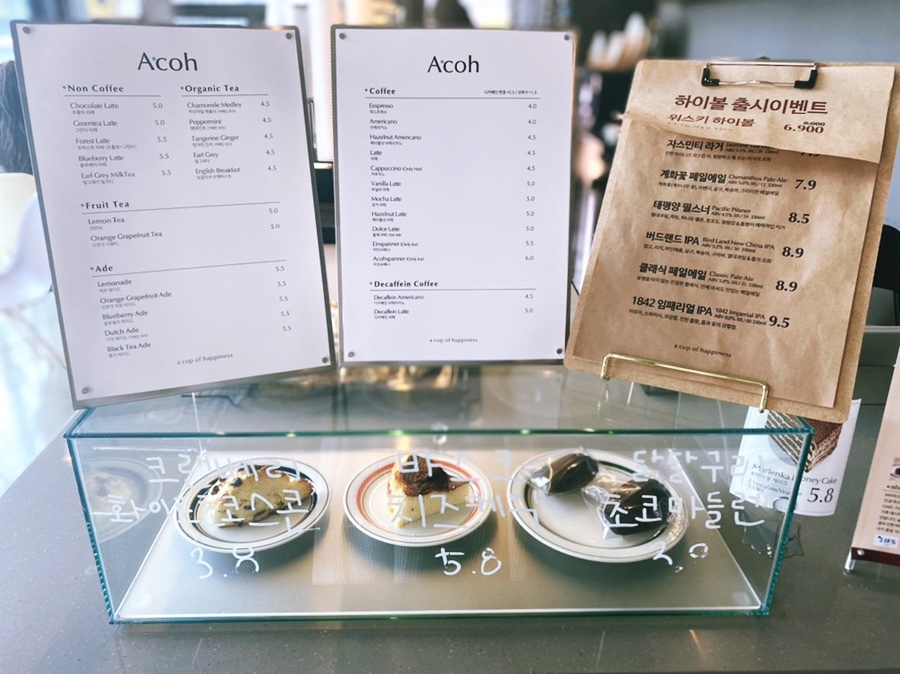 A.coh
*Non Coffee
Chocolate Latte 5.0
초콜릿 라떼
Greentea Latte 5.0
그린티 라떼
Forest Latte 5.5
Blueberry Latte 5.5
블루베리 라떼
Earl Grey MilkTea 5.5
얼그레이 밀크티
*Organic Tea
Chamomile Medley 4.5
Peppermint 4.5
Tangerine Ginger 4.5
Earl Grey 4.5
얼그레이
English Breakfast 4.5
*Fruit Tea
Lemon Tea 5.0
레몬티
Orange Grapefruit Tea
*Ade
Lemonade 5.5
Orange Grapefruit Ade 5.5
Blueberry Ade 5.5
블루베리 에이드
Dutch Ade 5.5
Black Tea Ade 5.5
a cup of happiness
A.coh
*Coffee
Espresso 4.0
에스프레소
Americano 4.0
아메리카노
Hazelnut Americano 4.5
헤이즐넛 아메리카노
Latte 4.5
라떼
Cappuccino (Only hot) 4.5
카푸치노
Vanilla Latte 5.0
바닐라 라떼
Mocha Latte 5.0
모카 라떼
Hazelnut Latte 5.0
헤이즐넛 라떼
Dolce Latte 5.0
Einspanner (Only ice) 5.5
아인슈페너
Acohspanner (Only ice) 6.0
*Decaffein Coffee
Decaffein Americano 4.5
디카페인 아메리카노
Decaffein Latte 5.0
디카페인 라떼
a cup of happiness
하이볼 출시이벤트
위스키 하이볼 8,000 6,900
자스민티 라거
계화꽃 페일에일 Osmanthus Pale Ale 7.9
태평양 필스너 Pacific Pilsner 8.5
버드랜드 IPA Bird Land New China IPA 8.9
클래식 페일에일 Classic Pale Ale 8.9
1842 임페리얼 IPA 1842 Imperial IPA 9.5
a cup of happiness
크랜베리
화이트초코스콘
3.8
바스크
치즈케익
5.8
달달구리
초코마들렌
3.0
Marlenka Honey Cake
5.8